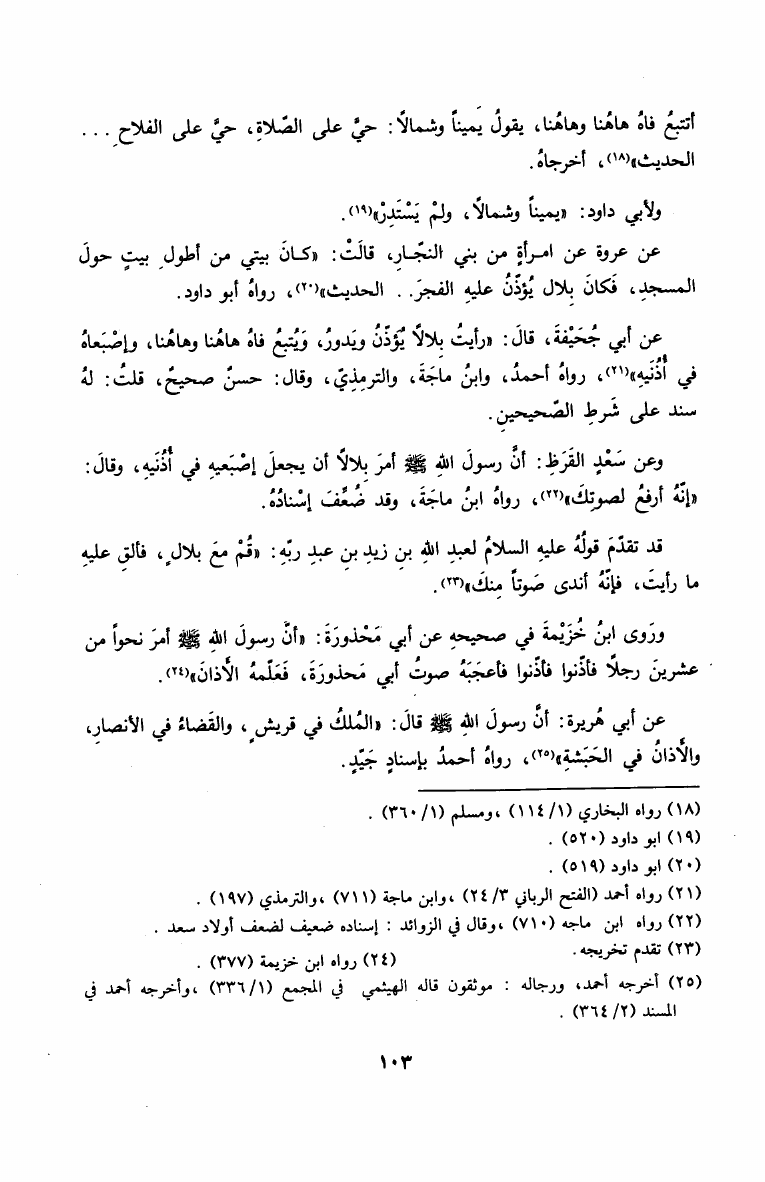 أتتبعُ فاهُ هاهُنا وهاهُنا، يقولُ يَميناً وشمالًا: حيَّ على الصّلاةِ، حيَّ على الفلاحِ ...
الحديث»(١٨)، أخرجاهُ.
ولأبي داود: «يميناً وشمالًا، ولمْ يَسْتَدِرْ»(١٩).
عن عروة عن امرأةٍ من بني النجّارِ، قالَتْ: «كانَ بيتي من أطولِ بيتٍ حولَ
المسجدِ، فَكانَ بِلال يُؤذّنُ عليهِ الفجرَ.. الحديث»(٢٠)، رواهُ أبو داود.
عن أبي جُحَيْفةَ، قالَ: «رأيتُ بِلالًا يُؤذّنُ ويَدورُ، وَيُتبعُ فاهُ هاهُنا وهاهُنا، وإصْبَعاهُ
في أُذُنَيهِ»(٢١)، رواهُ أحمدُ، وابنُ ماجَةَ، والترمِذيّ، وقال: حسنٌ صحيحٌ، قلتُ: لهُ
سند على شَرطِ الصّحيحينِ.
وعن سَعْدٍ القَرَظِ: أنَّ رسولَ اللهِ ﷺ أمرَ بِلالًا أن يجعلَ إصْبَعيهِ في أُذُنَيهِ، وقالَ:
«إنّهُ أرفعُ لصوتِكَ»(٢٢)، رواهُ ابنُ ماجَةَ، وقد ضُعِّفَ إسْنادُهُ.
قد تقدّمَ قولُهُ عليهِ السلامُ لعبدِ اللهِ بنِ زيدِ بنِ عبدِ ربّهِ: «قُمْ معَ بلالٍ، فألقِ عليهِ
ما رأيتَ، فإنّهُ أندى صَوتاً مِنكَ»(٢٣).
ورَوى ابنُ خُزَيْمةَ في صحيحهِ عن أبي مَحْذورَةَ: «أنَّ رسولَ اللهِ ﷺ أمرَ نحواً من
عشرينَ رجلًا فأذّنوا فأذّنوا فأعجَبَهُ صوتُ أبي مَحذورَةَ، فَعَلّمهُ الأذانَ»(٢٤).
عن أبي هُريرة: أنَّ رسولَ اللهِ ﷺ قالَ: «المُلكُ في قريشٍ، والقَضاءُ في الأنصارِ،
والأذانُ في الحَبَشةِ»(٢٥)، رواهُ أحمدُ بإسنادٍ جَيّدٍ.
(١٨) رواه البخاري (١/ ١١٤) ،ومسلم (١/ ٣٦٠) .
(١٩) ابو داود (٥٢٠) .
(٢٠) ابو داود (٥١٩) .
(٢١) رواه أحمد (الفتح الرباني ٣/ ٢٤) ،وابن ماجة (٧١١) ،والترمذي (١٩٧) .
(٢٢) رواه ابن ماجه (٧١٠) ،وقال في الزوائد : إسناده ضعيف لضعف أولاد سعد .
(٢٣) تقدم تخريجه. (٢٤) رواه ابن خزيمة (٣٧٧) .
(٢٥) أخرجه أحمد، ورجاله : موثقون قاله الهيثمي في المجمع (١/ ٣٣٦) ،وأخرجه أحمد في
المسند (٢/ ٣٦٤) .
١٠٣